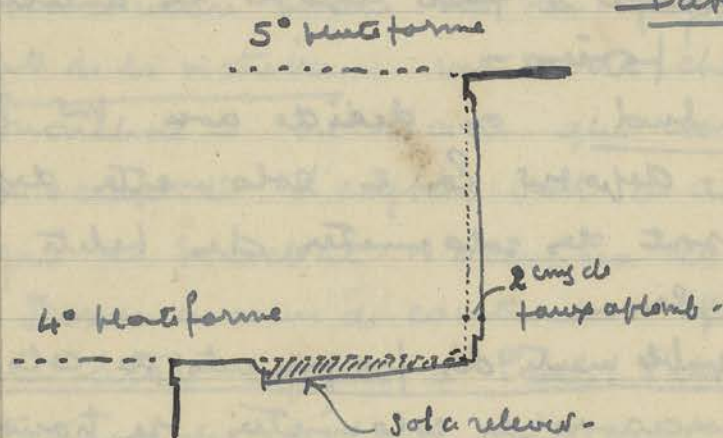 5° plateforme
2 cms de
faux aplomb -
4° plateforme
Sol a relever -